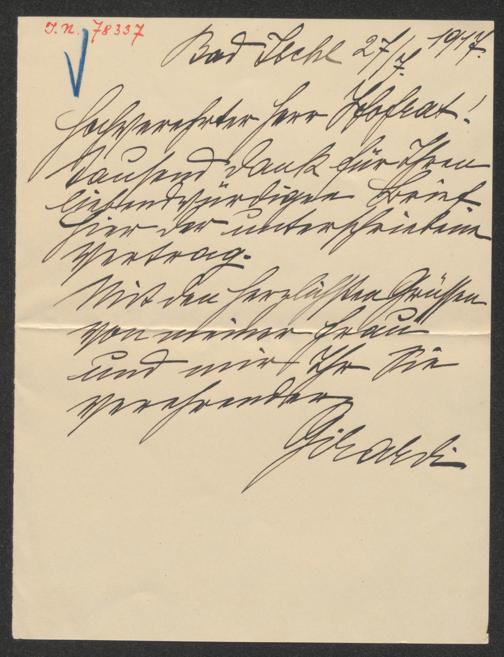 I.N. 78337
Bad Ischl 27/7. 1917.
Hochverehrter Herr Hofrat!
Tausend Dank für Ihren
liebenswürdigen Brief
hier der unterschriebene
Vertrag.
Mit den herzlichsten Grüssen
von meiner Frau
und mir Ihr Sie
verehrender
Girardi